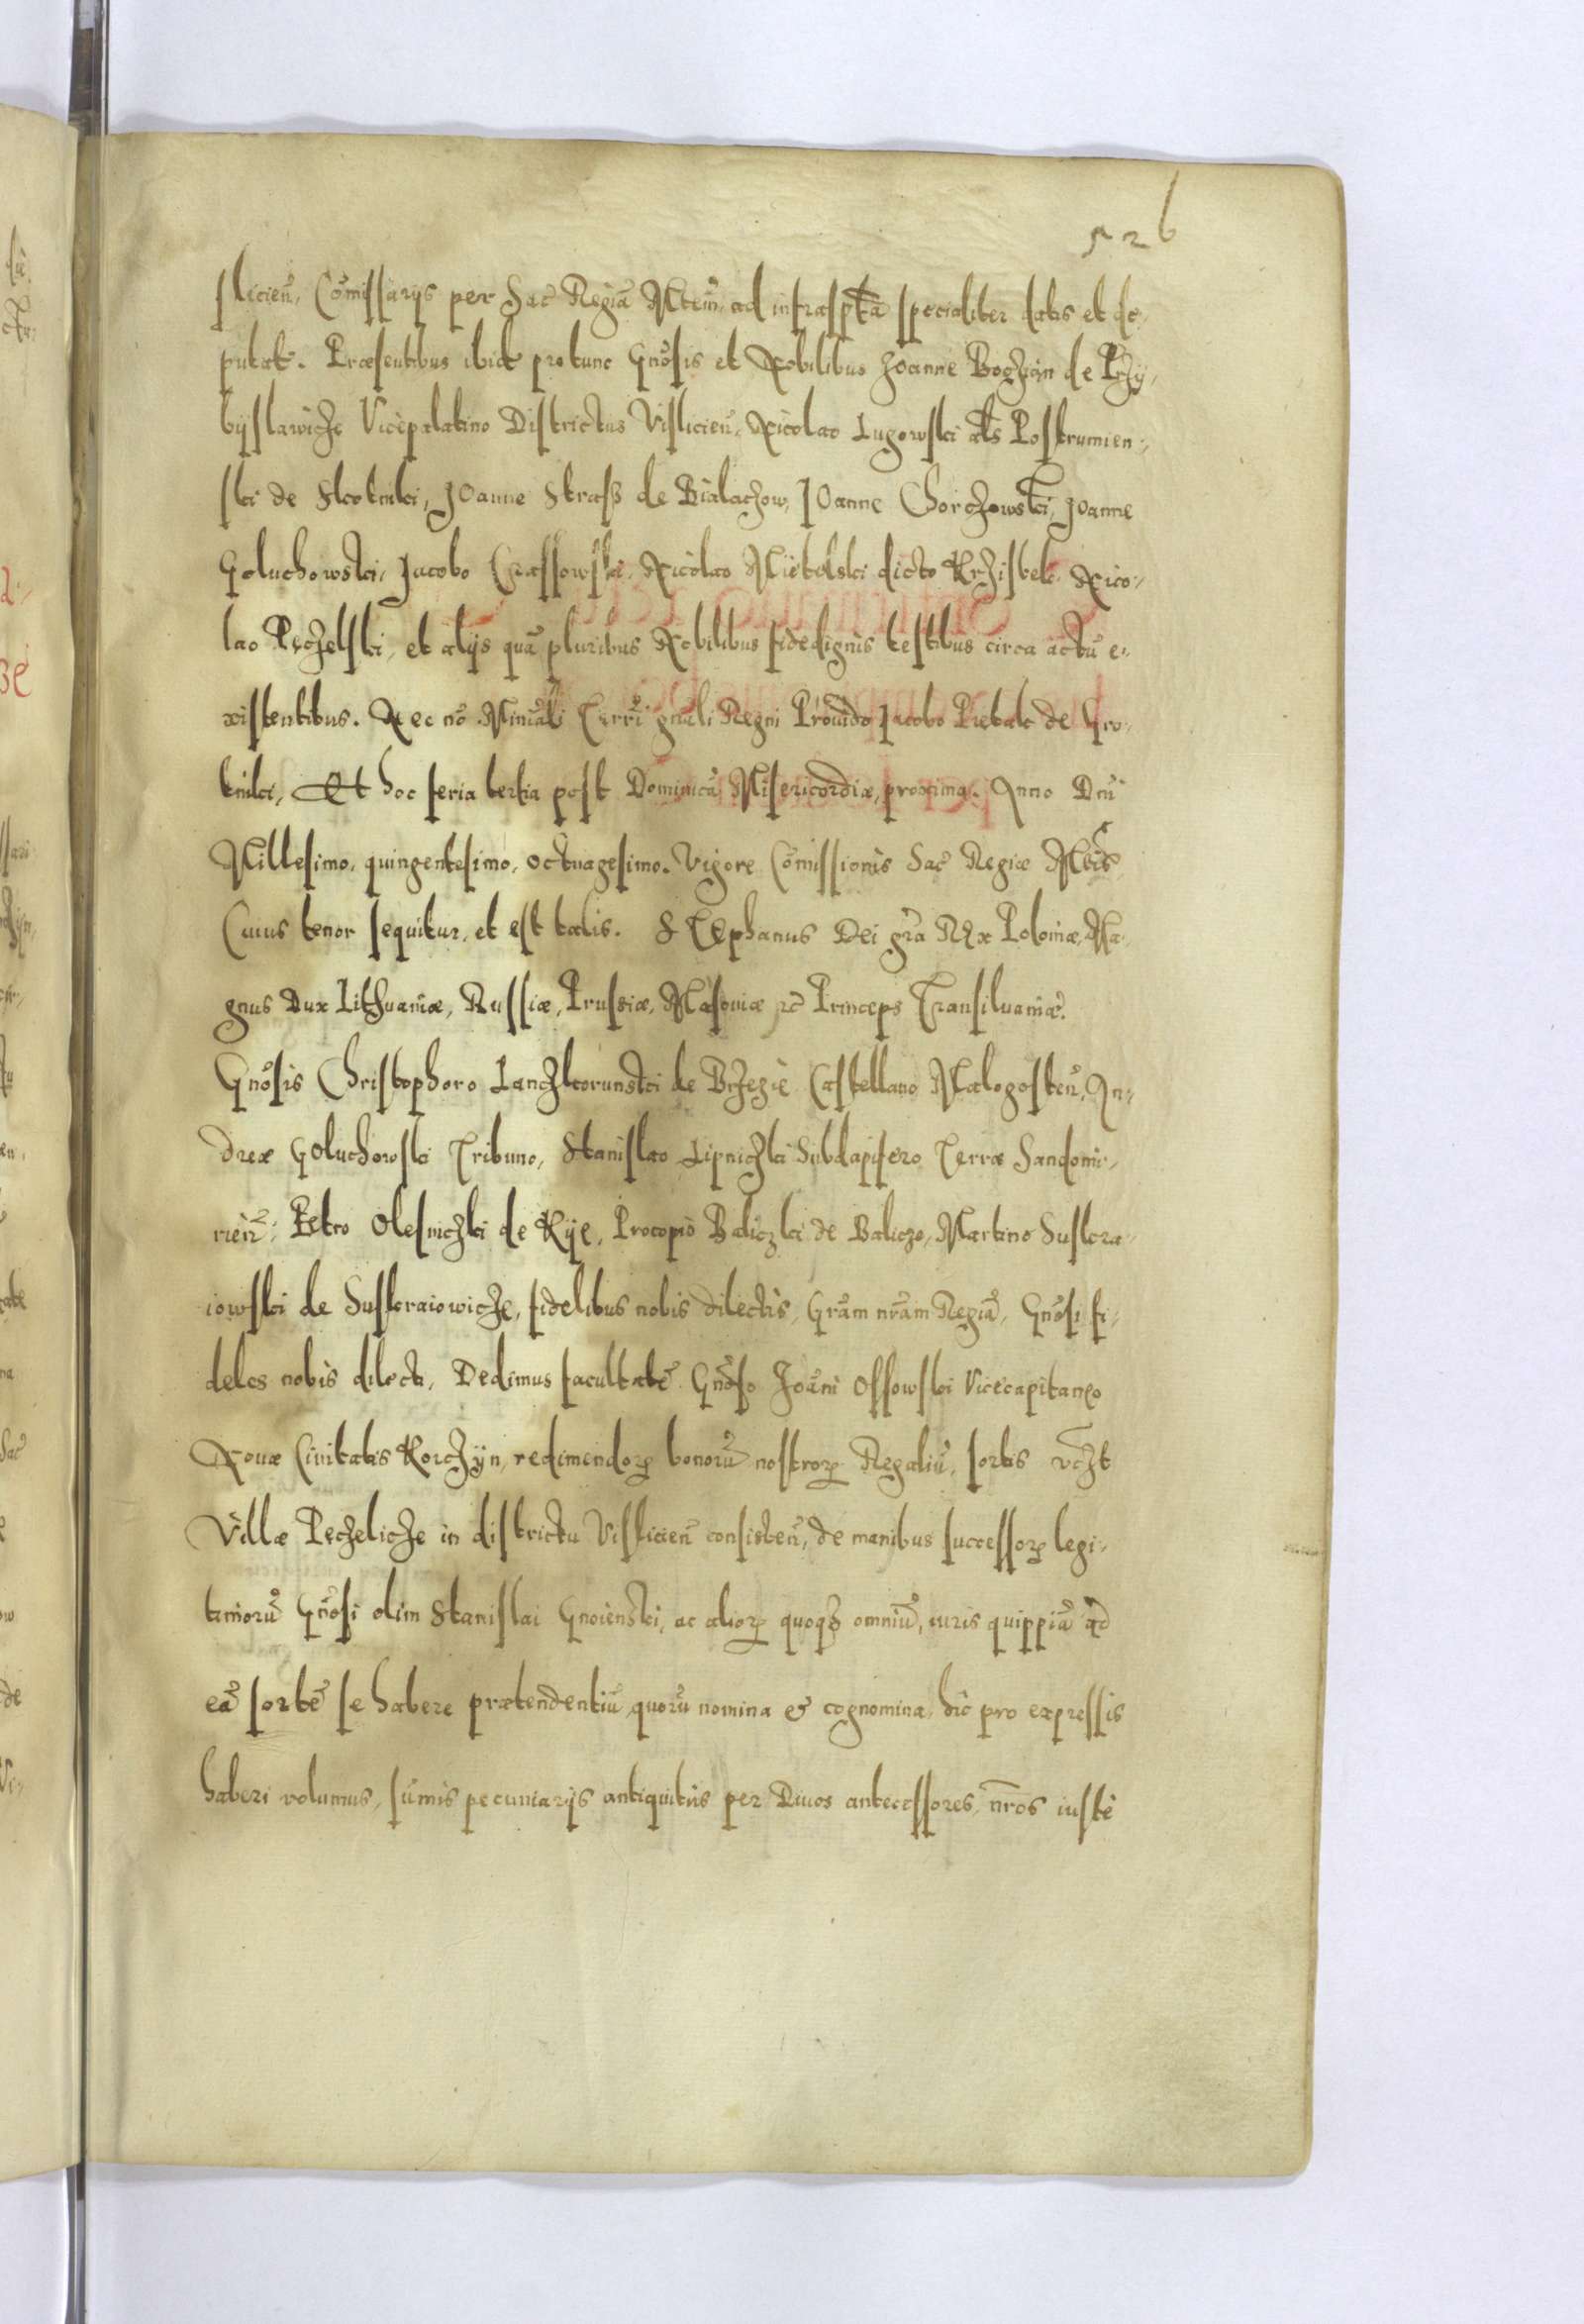 526
slicieñ, Com̃issarijs per Sac̃ Regiã Mtem̃ ad infrasptã specialiter datis et de-
putat̃. Præsentibus ibid̃ pro tunc Gñosis et Nobilibus Joanne Bogȝan de Prȝy-
byslawicȝe Vicepalatino Districtus Visliciẽn, Nicolao Lugowski al̃s Postrumien-
ski de Skotniki, Joanne Straß de Bialacȝow, Joanne Chorcȝowski, Joanne
Goluchowski, Jacobo Crassowski, Nicolao Nietelski dicto Krȝistek, Nico-
lao Pecȝelski, et alijs quã pluribus Nobilibus fidedignis testibus circa actũ e-
xistentibus. Nec nõ Miniãli Terrĩ gnãli Regni Prouido Jacobo Pietak de Gro-
tniki, Et hoc feria tertia post Dominicã Misericordiæ, proxima. Anno Dñi
Millesimo, quingentesimo, octuagesimo. Vigore Com̃issionis Sac̃ Regiæ Mtis̃
Cuius tenor sequitur, et est talis. STephanus Dei grã Rex Poloniæ, Ma-
gnus Dux Lithuaniæ, Russiæ, Prussiæ, Masouiæ ꝛc̃ Princeps Transiluaniæ.
Gñosis Christophoro Lancȝkorunski de Brȝeȝie Castellano Malogosteñ, An-
dreæ Goluchowski Tribuno, Stanislao Lipnicȝki Subdapifero Terræ Sandomi-
rieñ, Petro Olesnicȝki de Kije, Procopio Balicȝki de Balicȝe, Martino Suskra-
iowski de Suskraiowicȝe, fidelibus nobis dilectis, Grãm nrãm Regiã, Gñosi fi-
deles nobis dilecti, Dedimus facultatẽ Gñoso Joãni Ossowski Vicecapitaneo
Nouæ Ciuitatis Korcȝyn, redimendoꝝ bonorũ nostroꝝ Regaliũ, sortis vcȝt
Villæ Pecȝelicȝe in districtu Visliciẽn consisteñ, de manibus successoꝝ legi-
timorũ Gñosi olim Stanislai Gnoienski, ac alioꝝ quoqȝ omniũ, iuris quippiã ad
eã sortẽ se habere prætendentiũ, quorũ nomina & cognomina, hic pro expressis
haberi volumus, sum̃is pecuniarijs antiquitùs per Diuos antecessores, nr̃os iustè